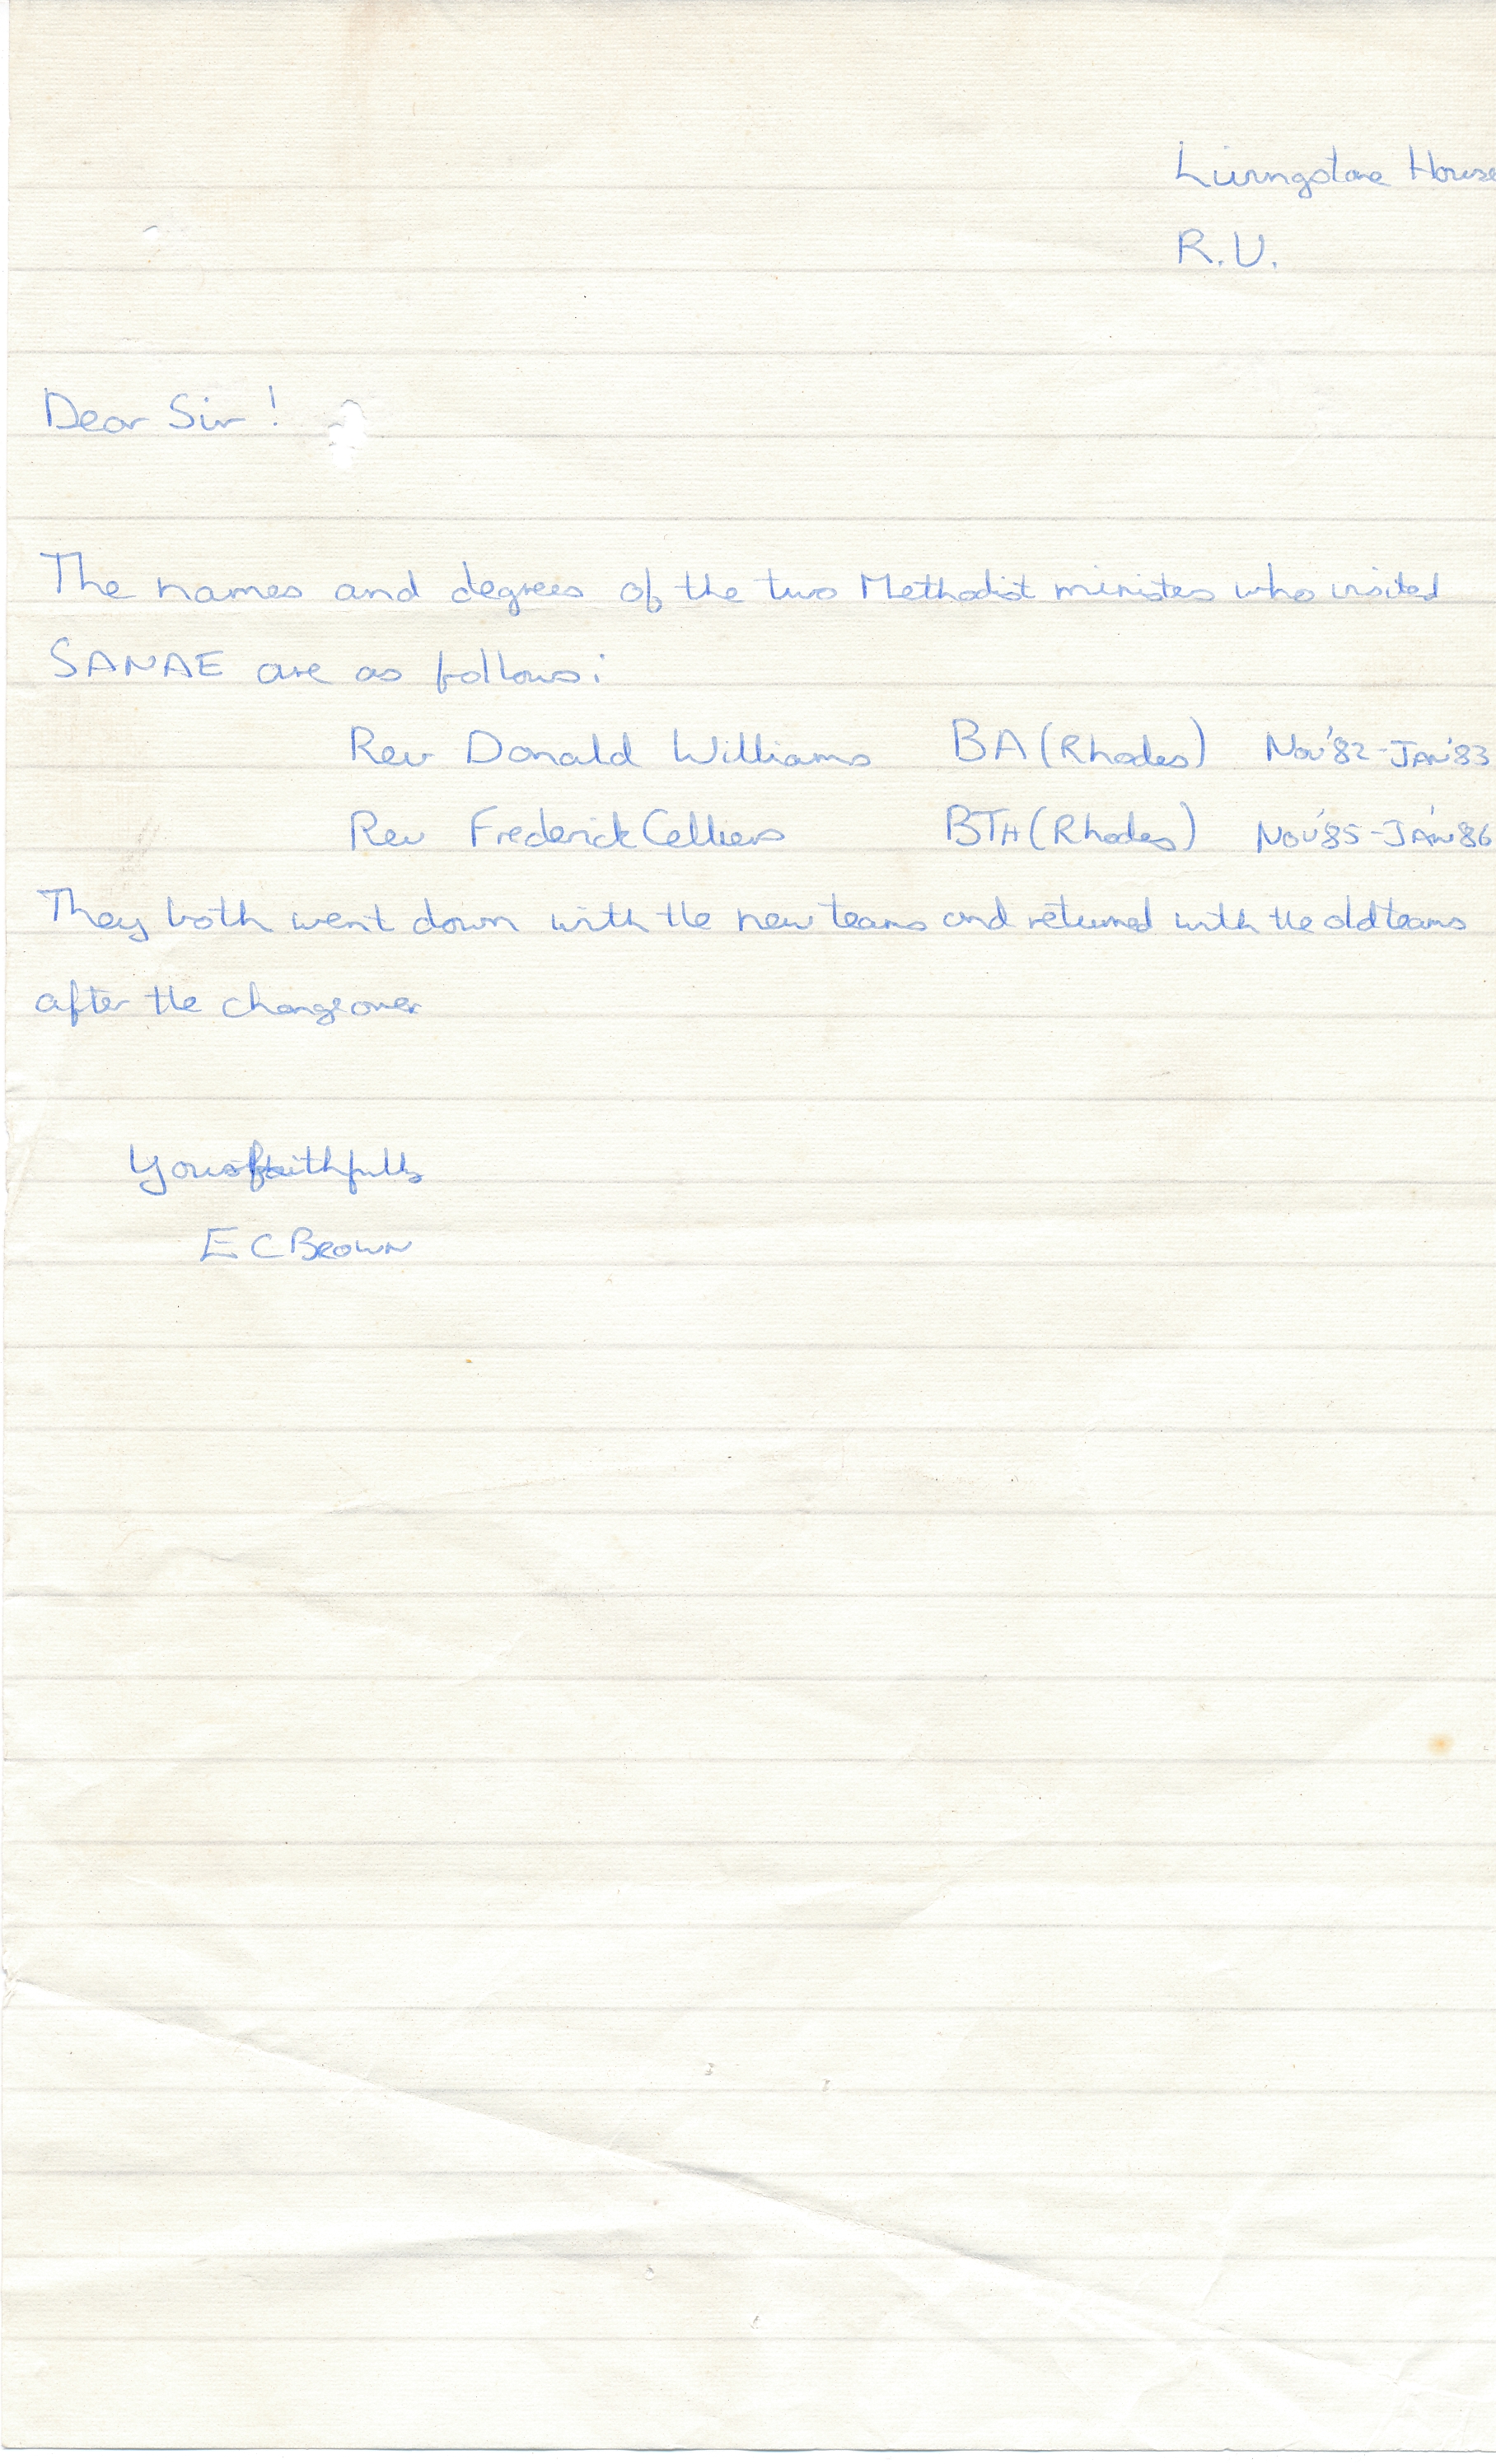 Livingstone House
R.U.
Dear Sir!
The names and degrees of the two Methodist ministers who visited
SANAE are as follows:
Rev Donald Williams BA (Rhodes) Nov'82-JAN'83
Rev Frederick Celliers BTH (Rhodes) NOV'85-JAN'86
They both went down with the new teams and returned with the old teams
after the changeover
Yours faithfully
E C BROWN